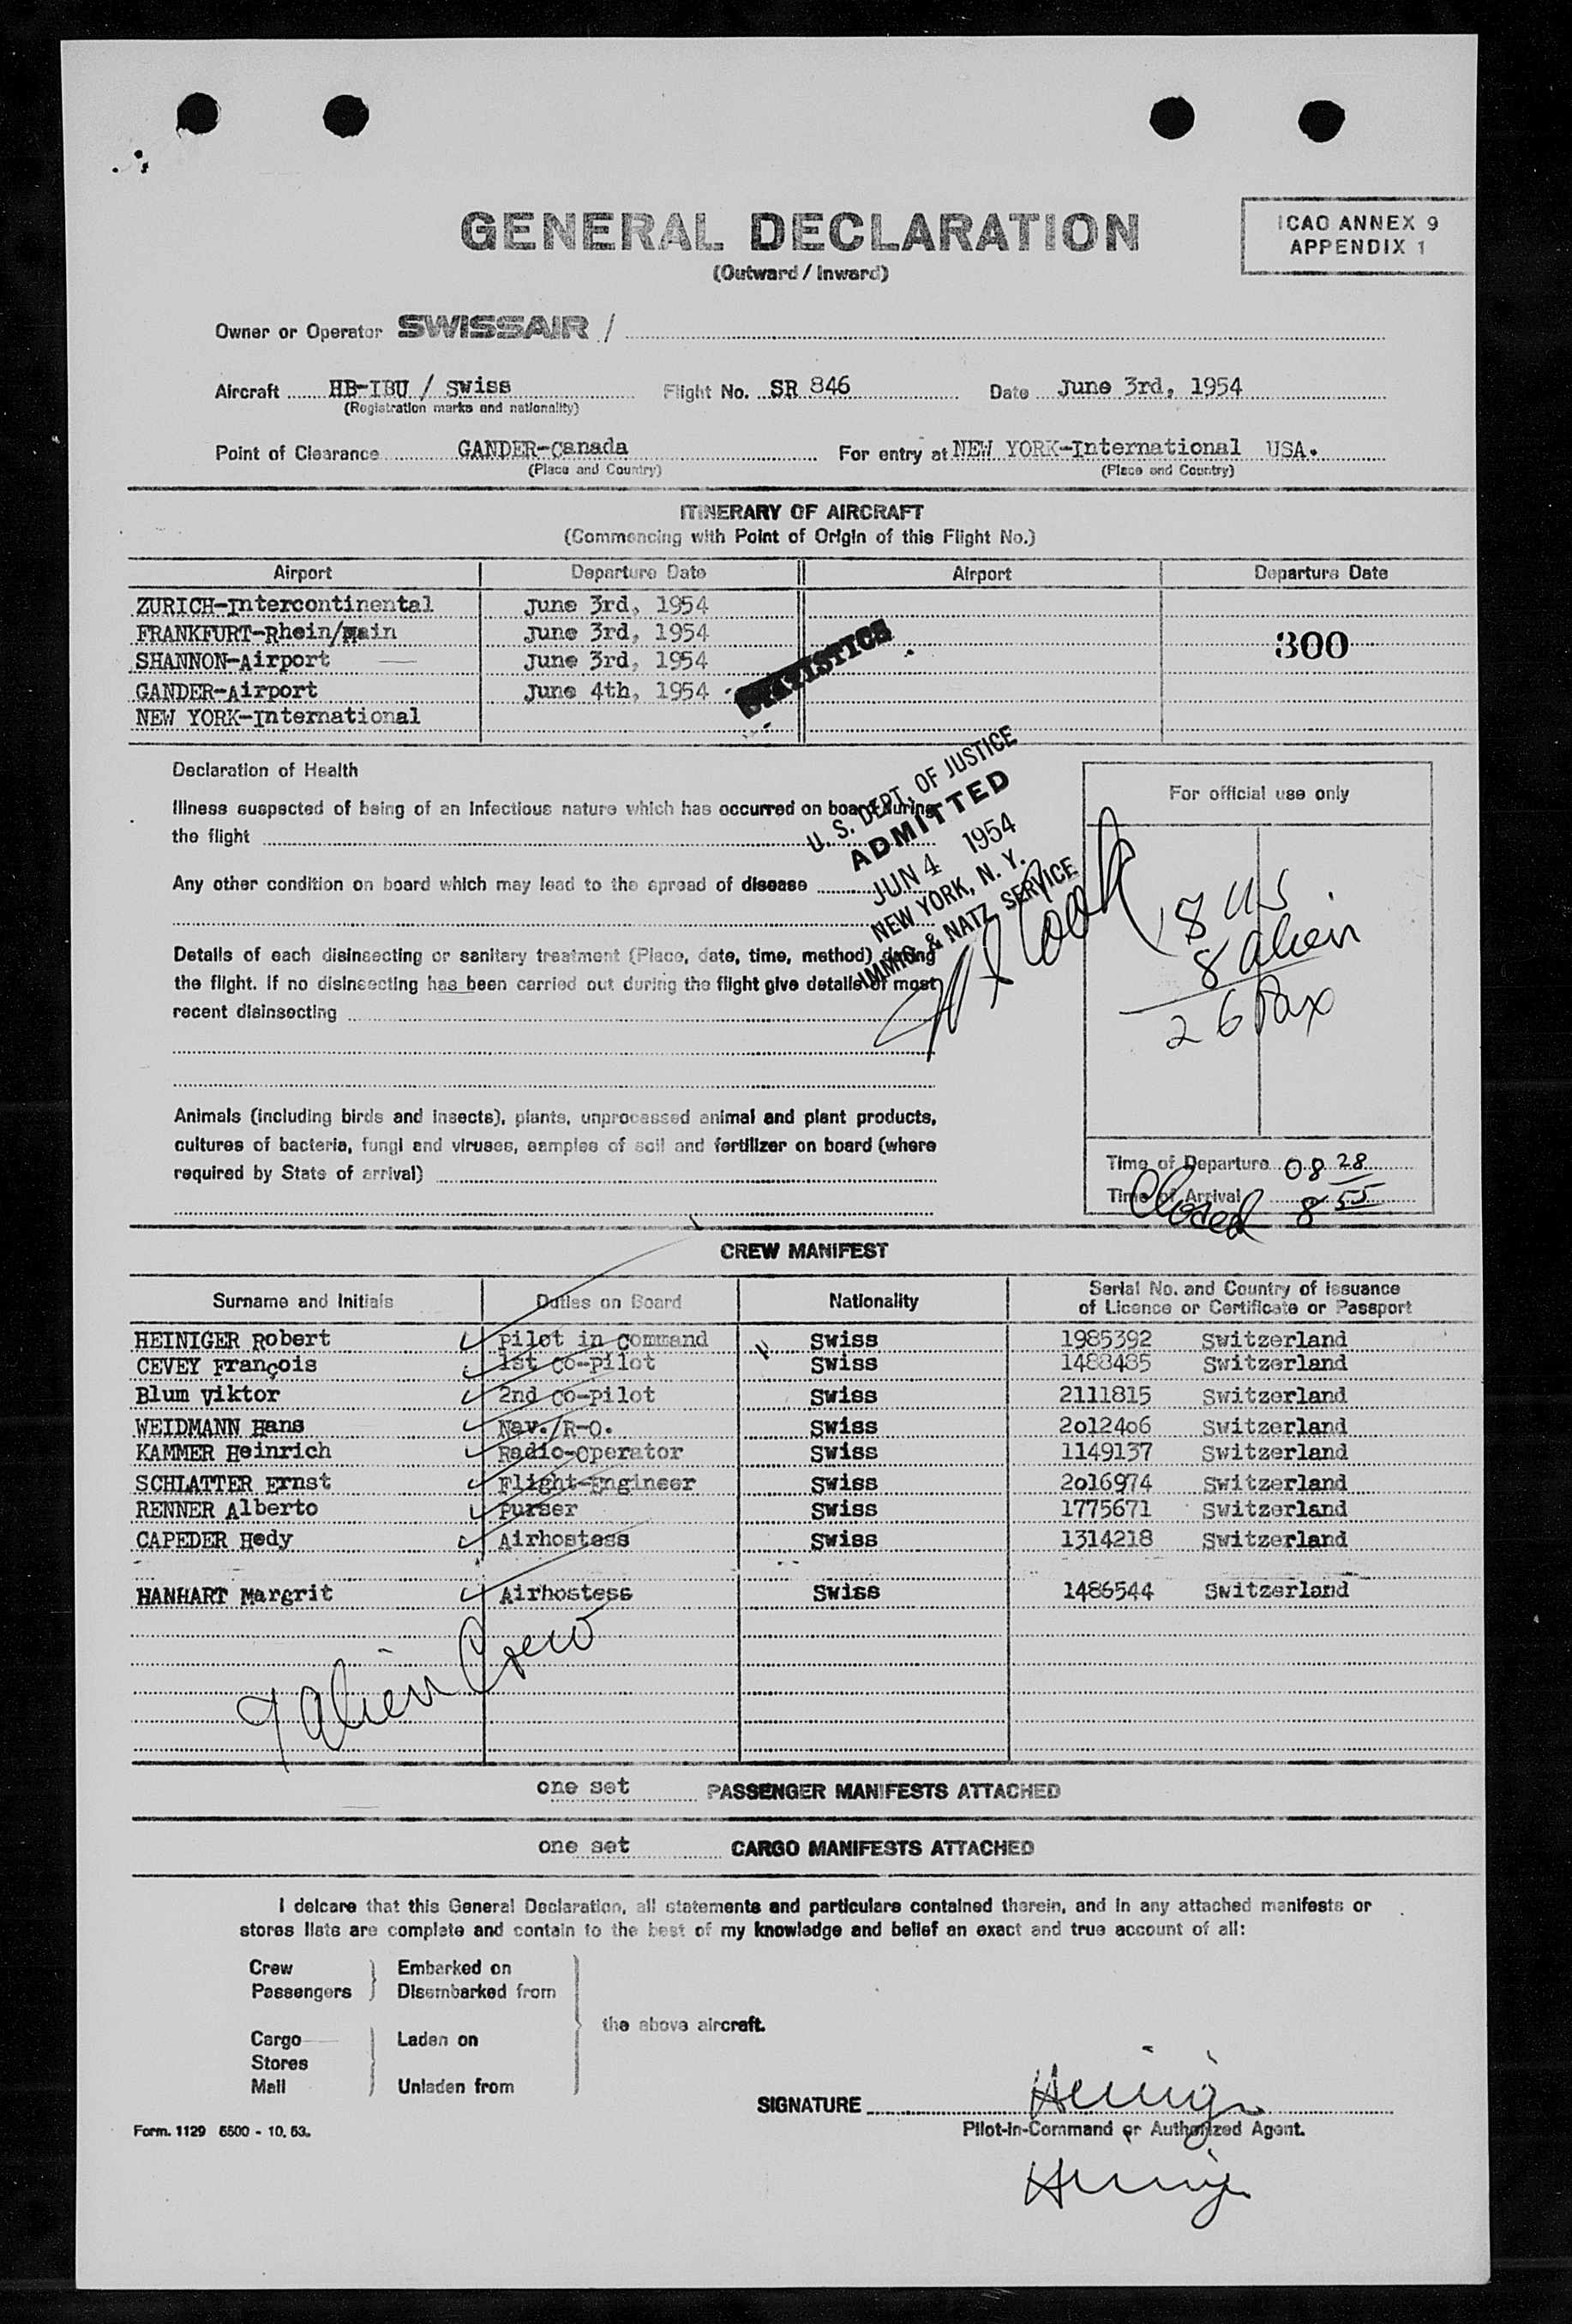 GENERAL DECLARATION
(Outward / Inward)
ICAO ANNEX 9
APPENDIX 1
Owner or Operator SWISSAIR /
Aircraft HB-IBU / Swiss Flight No. SR 846 Date June 3rd, 1954
(Registration marks and nationality)
Point of Clearance GANDER-Canada For entry at NEW YORK-International USA.
(Place and Country) (Place and Country)
ITINERARY OF AIRCRAFT
(Commencing with Point of Origin of this Flight No.)
Airport Departure Date Airport Departure Date
ZURICH-Intercontinental June 3rd, 1954
FRANKFURT-Rhein/Main June 3rd, 1954
300
SHANNON-Airport June 3rd, 1954
GANDER-Airport June 4th, 1954
NEW YORK-International
STATISTICS
Declaration of Health
Illness suspected of being of an infectious nature which has occurred on board during
the flight
Any other condition on board which may lead to the spread of disease
Details of each disinsecting or sanitary treatment (Place, date, time, method) during
the flight. If no disinsecting has been carried out during the flight give details of most
recent disinsecting
Animals (including birds and insects), plants, unprocessed animal and plant products,
cultures of bacteria, fungi and viruses, samples of soil and fertilizer on board (where
required by State of arrival)
U. S. DEPT. OF JUSTICE
ADMITTED
JUN 4 1954
NEW YORK, N. Y.
IMMIG. & NATZ. SERVICE
Cook
For official use only
18 US
8 alien
26 Pax
Time of Departure 08 28
Time of Arrival 8 55
Closed
CREW MANIFEST
Surname and Initials Duties on Board Nationality Serial No. and Country of Issuance
of Licence or Certificate or Passport
HEINIGER Robert Pilot in Command Swiss 1985392 Switzerland
CEVEY François 1st Co-Pilot Swiss 1488485 Switzerland
Blum Viktor 2nd Co-Pilot Swiss 2111815 Switzerland
WEIDMANN Hans Nav./R-O. Swiss 2012406 Switzerland
KAMMER Heinrich Radio-Operator Swiss 1149137 Switzerland
SCHLATTER Ernst Flight-Engineer Swiss 2016974 Switzerland
RENNER Alberto Purser Swiss 1775671 Switzerland
CAPEDER Hedy Airhostess Swiss 1314218 Switzerland
HANHART Margrit Airhostess Swiss 1486544 Switzerland
9 alien Crew
one set PASSENGER MANIFESTS ATTACHED
one set CARGO MANIFESTS ATTACHED
I delcare that this General Declaration, all statements and particulars contained therein, and in any attached manifests or
stores lists are complete and contain to the best of my knowledge and belief an exact and true account of all:
Crew Embarked on
Passengers Disembarked from
the above aircraft.
Cargo Laden on
Stores
Mail Unladen from
SIGNATURE Heiniger
Pilot-in-Command or Authorized Agent.
Form. 1129 5500 - 10. 53.
Heiniger